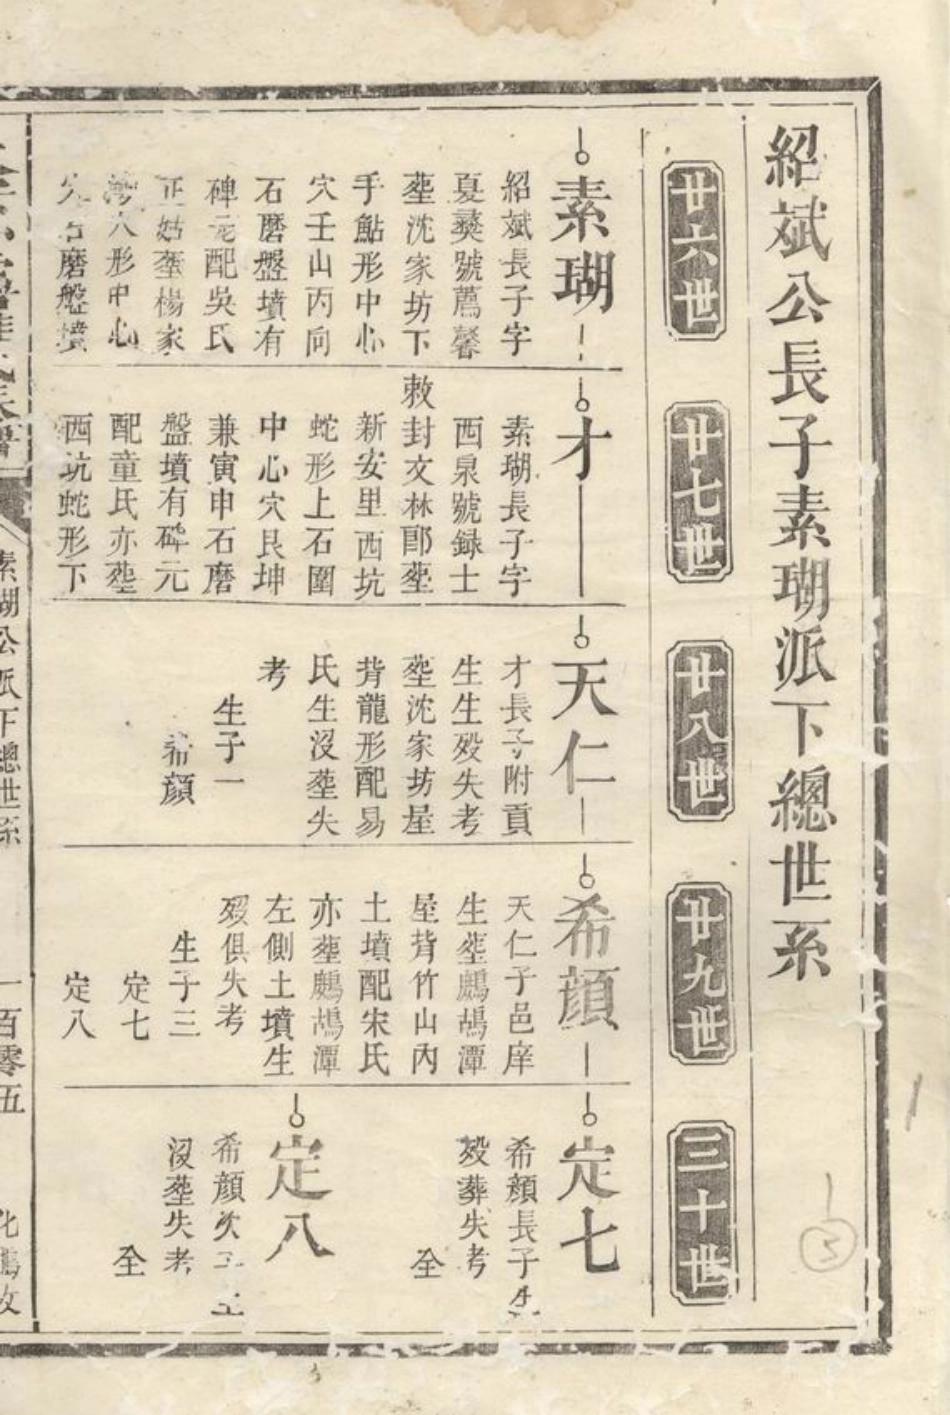 紹斌公長子素瑚派下總世系
廿六世
廿七世
廿八世
廿九世
三十世
素瑚
紹斌長子字
夏彝號薦馨
塟沈家坊下
手鮎形中心
穴壬山丙向
石磨盤墳有
碑元配吳氏
正姑塟楊家
形中心
磨盤墳
才
素瑚長子字
西泉號録士
敕封文林郎塟
新安里西坑
蛇形上石圍
中心穴艮坤
兼寅申石磨
盤墳有碑元
配童氏亦塟
西坑蛇形下
天仁
才長子附貢
生生殁失考
塟沈家坊屋
背龍形配易
氏生沒塟失
考
生子一
希顔
希顔
天仁子邑庠
生塟鷓鴣潭
屋背竹山內
土墳配宋氏
亦塟鷓鴣潭
左側土墳生
殁俱失考
生子三
定七
定八
定七
希顔長子生
殁葬失考
仝
定八
希顔次子生
沒塟失考
仝
素瑚公派下總世系
一百零五
3